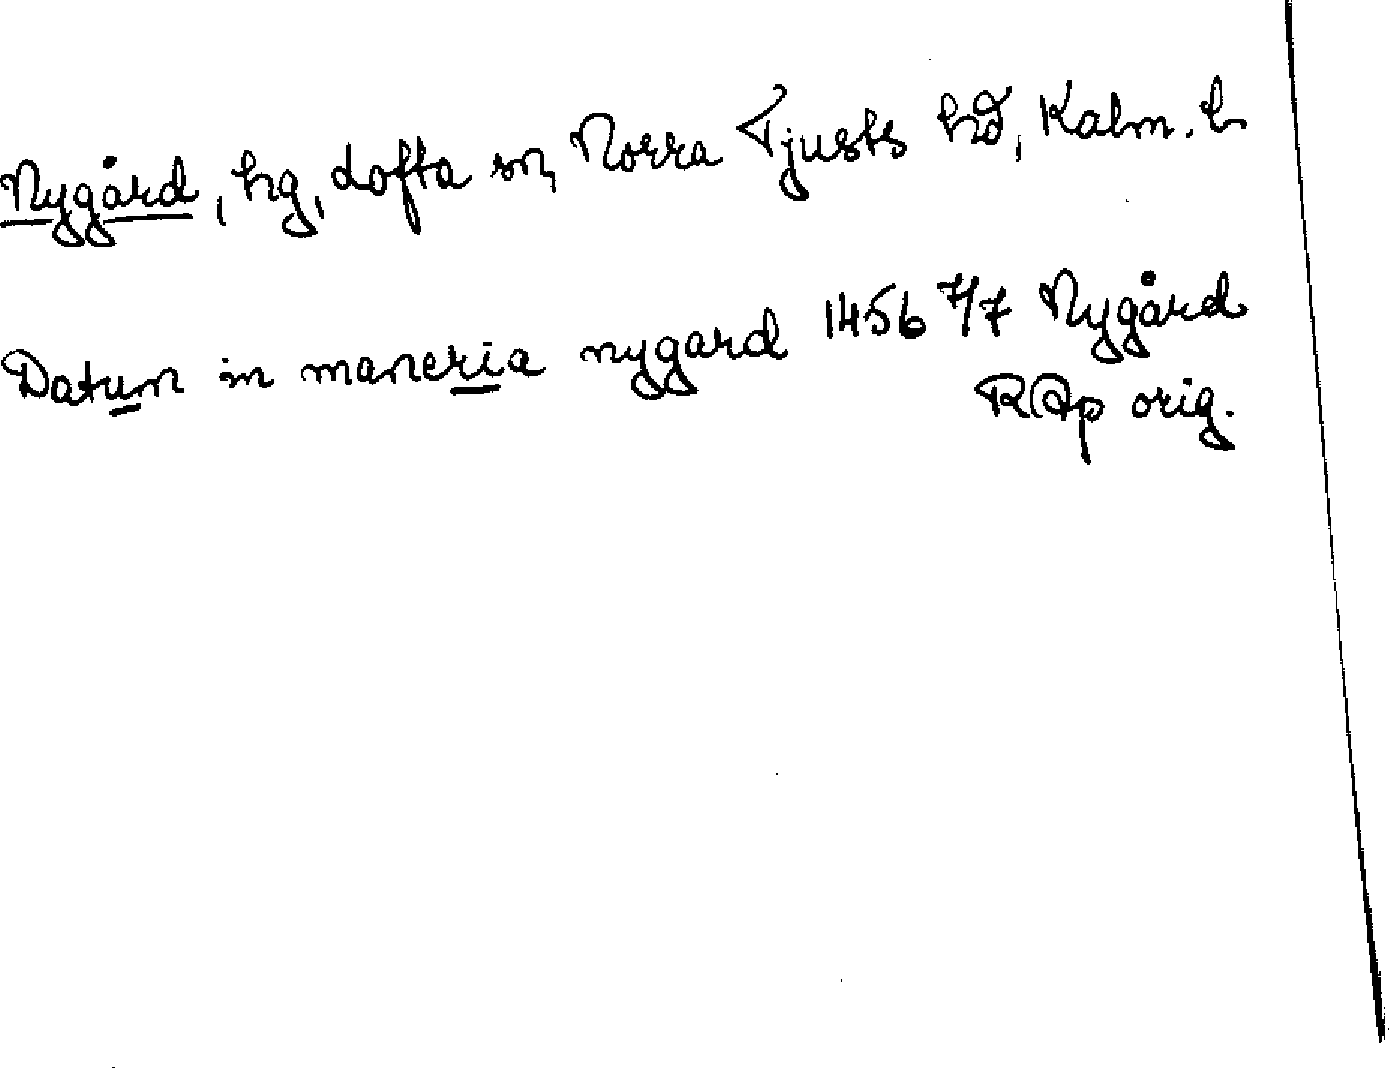 Nygård, hg, Lofta sn, Norra Tjusts hd, Kalm. l
Datum in maneria nygard 1456 7/7 Nygård
RAp orig.